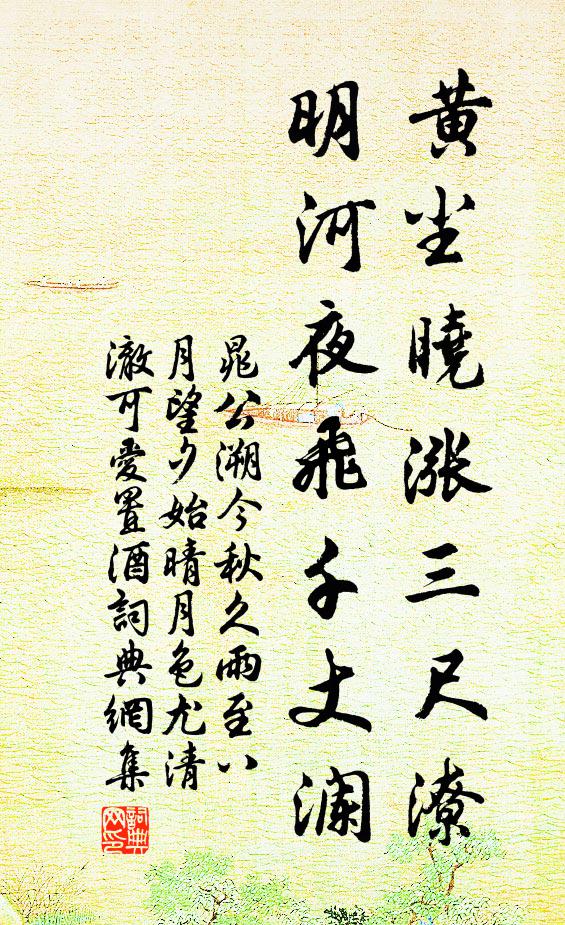 黄尘曉漲三尺潦
明河夜飛千丈瀾
晁公溯今秋久雨至八
月望夕始晴月色尤清
澈可愛置酒詞典網集
詞典網印